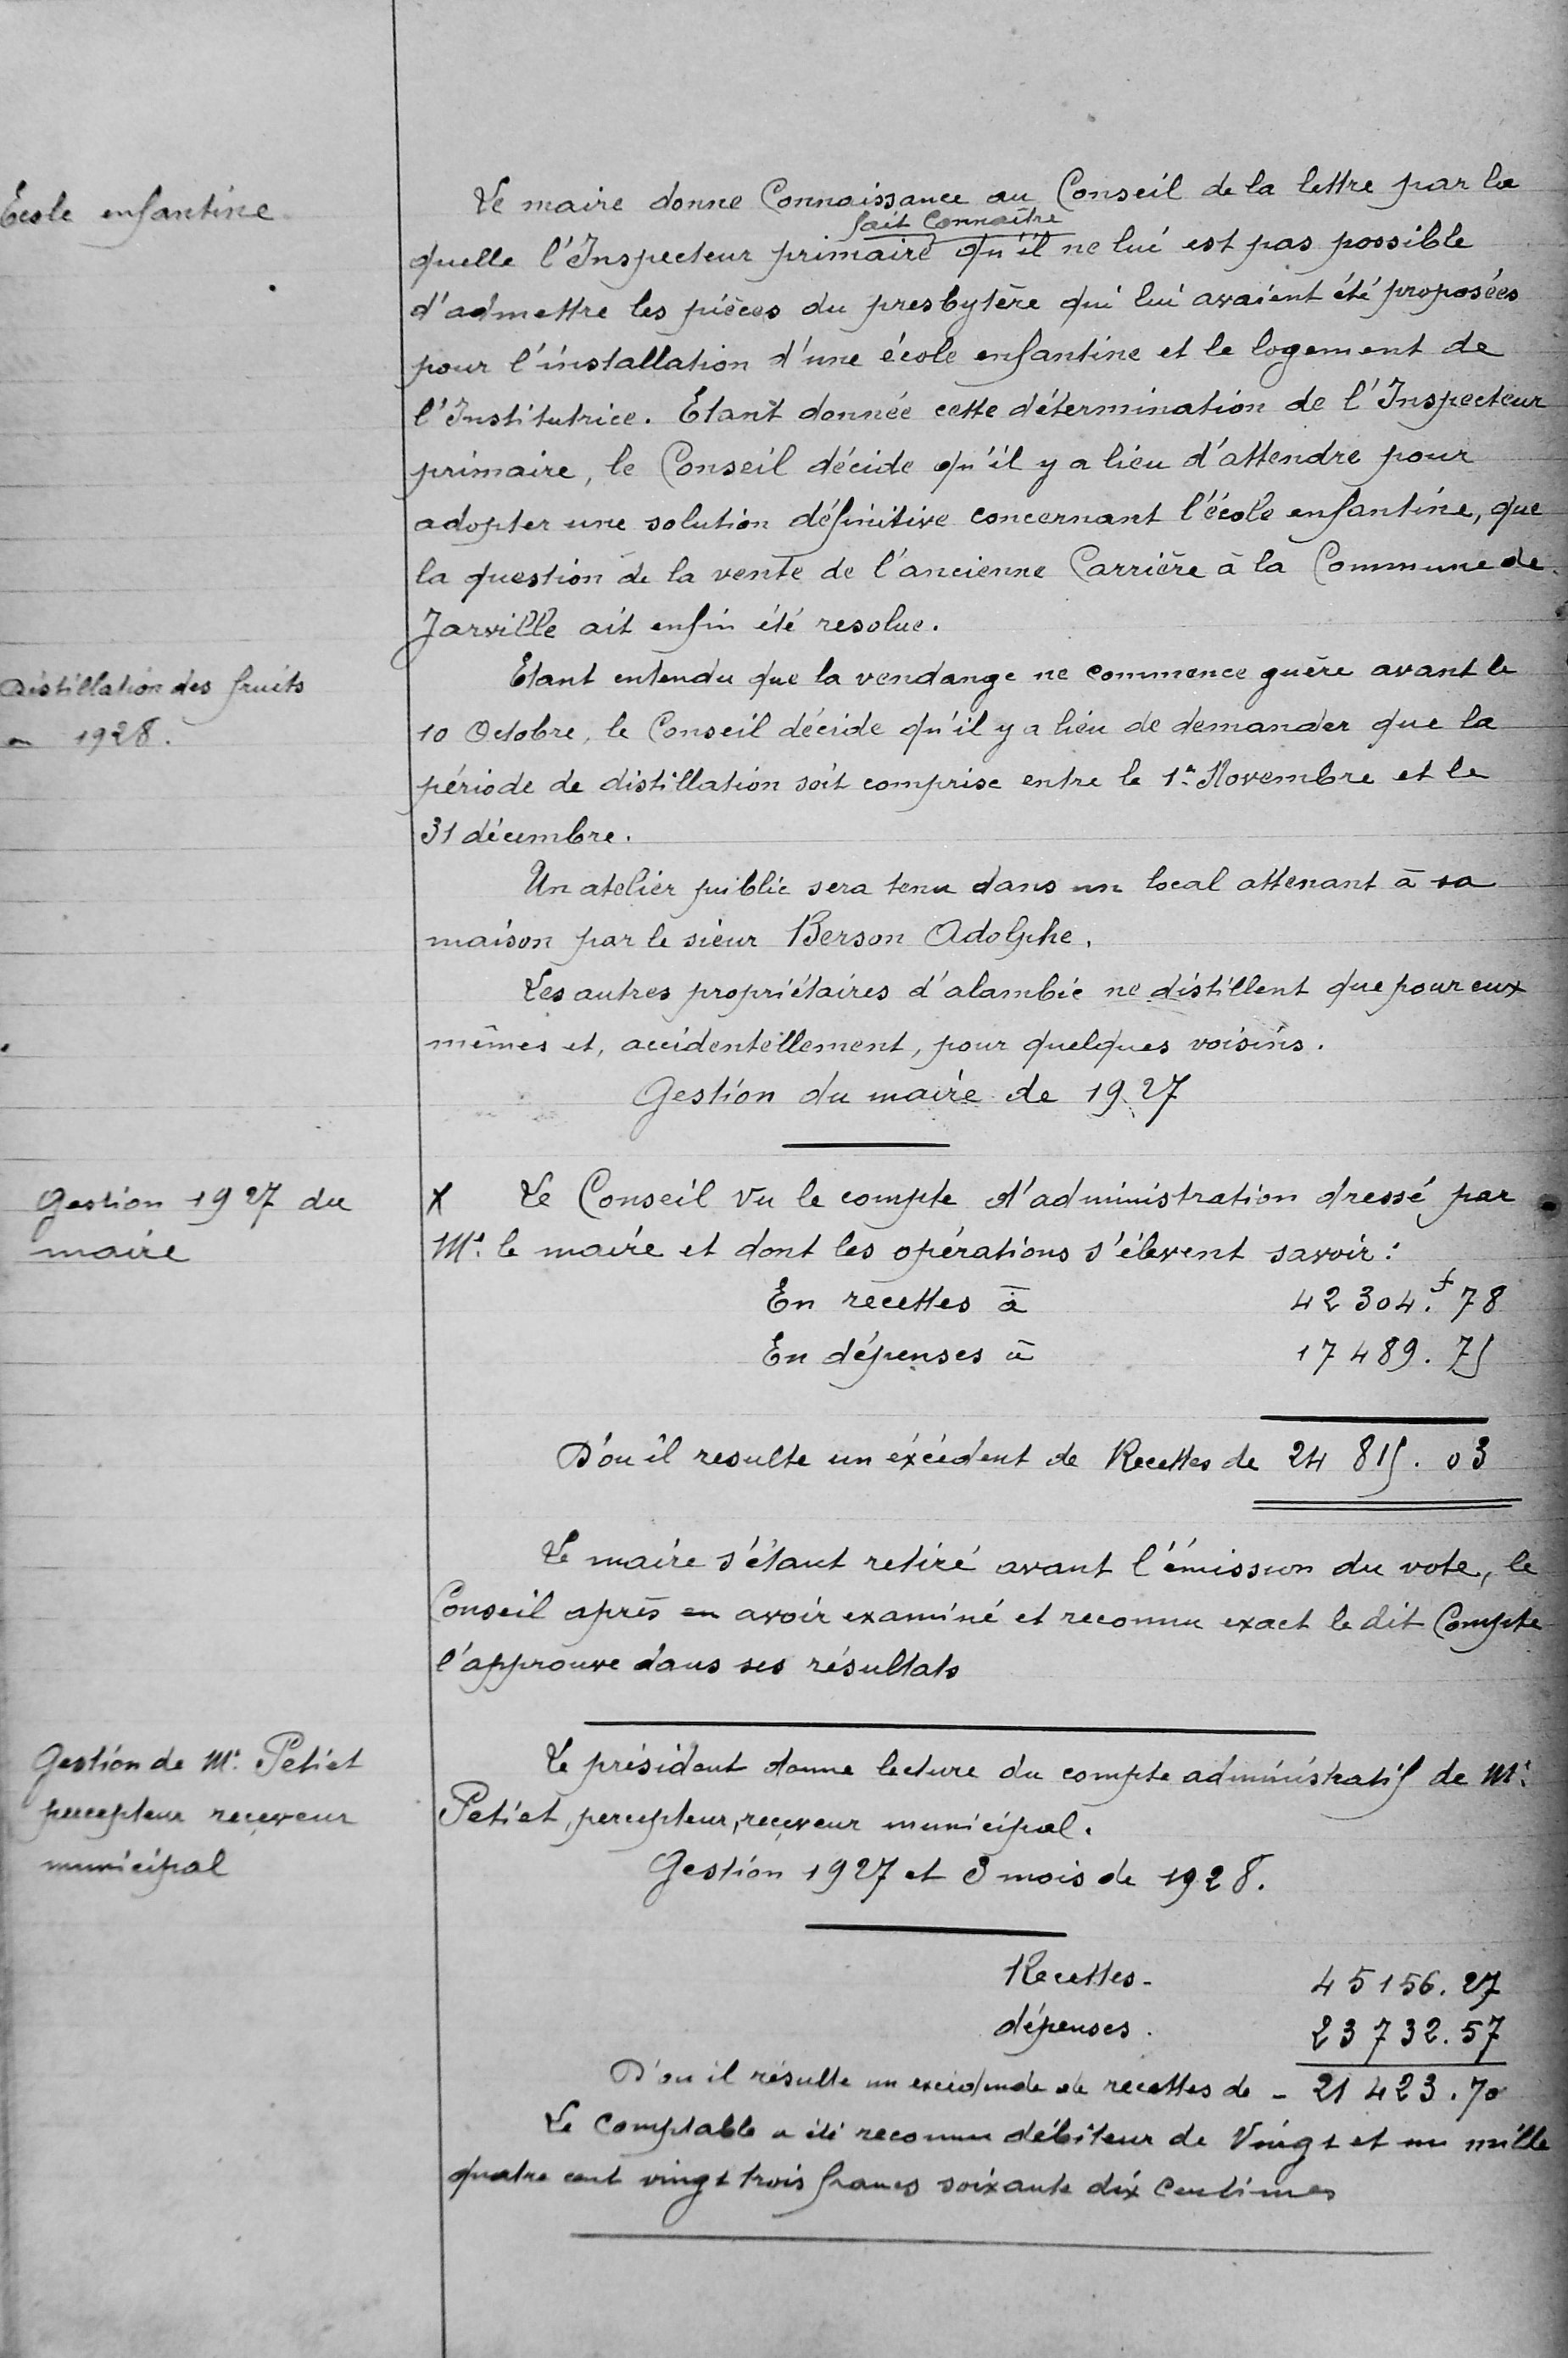 Ecole enfantine
Le maire donne Connaissance au Conseil de la lettre par la
fait Connaître
quelle l'Inspecteur primaire qu'il ne lui est pas possible
d'admettre les pièces du presbytère qui lui avaient été proposées
pour l'installation d'une école enfantine et le logement de
l'Institutrice. Etant donnée cette détermination de l'Inspecteur
primaire, le Conseil décide qu'il y a lieu d'attendre pour
adopter une solution définitive concernant l'école enfantine, que
la question de la vente de l'ancienne Carrière à la Commune de
Jarville ait enfin été resolue.
Distillation des fruits
en 1928.
Etant entendu que la vendange ne commence guère avant le
10 Octobre, le Conseil décide qu'il y a lieu de demander que la
période de distillation soit comprise entre le 1er Novembre et le
31 décembre.
Un atelier public sera tenu dans un local attenant à sa
maison par le sieur Berson Adolphe.
Les autres propriétaires d'alambic ne distillent que pour eux
mêmes et, accidentellement, pour quelques voisins.
Gestion du maire de 1927
Gestion 1927 du
maire
x Le Conseil Vu le compte d'administration dressé par
Mr. le maire et dont les opérations s'élèvent savoir :
En recettes à 42 304.f 78
En dépenses à 17 489. 75
D'où il resulte un éxcédent de Recettes de 24 815. 03
Le maire s'étant retiré avant l'émission du vote, le
Conseil après en avoir examiné et reconnu exact le dit Compte
l'approuve dans ses résultats
Gestion de Mr. Petiet
percepteur receveur
municipal
Le président donne lecture du compte administratif de Mr.
Petiet, percepteur, receveur municipal.
Gestion 1927 et 3 mois de 1928.
Recettes - 45156. 27
dépenses . 23 732. 57
D'où il résulte un excédende de recettes de - 21 423. 70
Le Comptable a été reconnu débiteur de Vingt et un mille
quatre cent vingt trois francs soixante dix Centimes